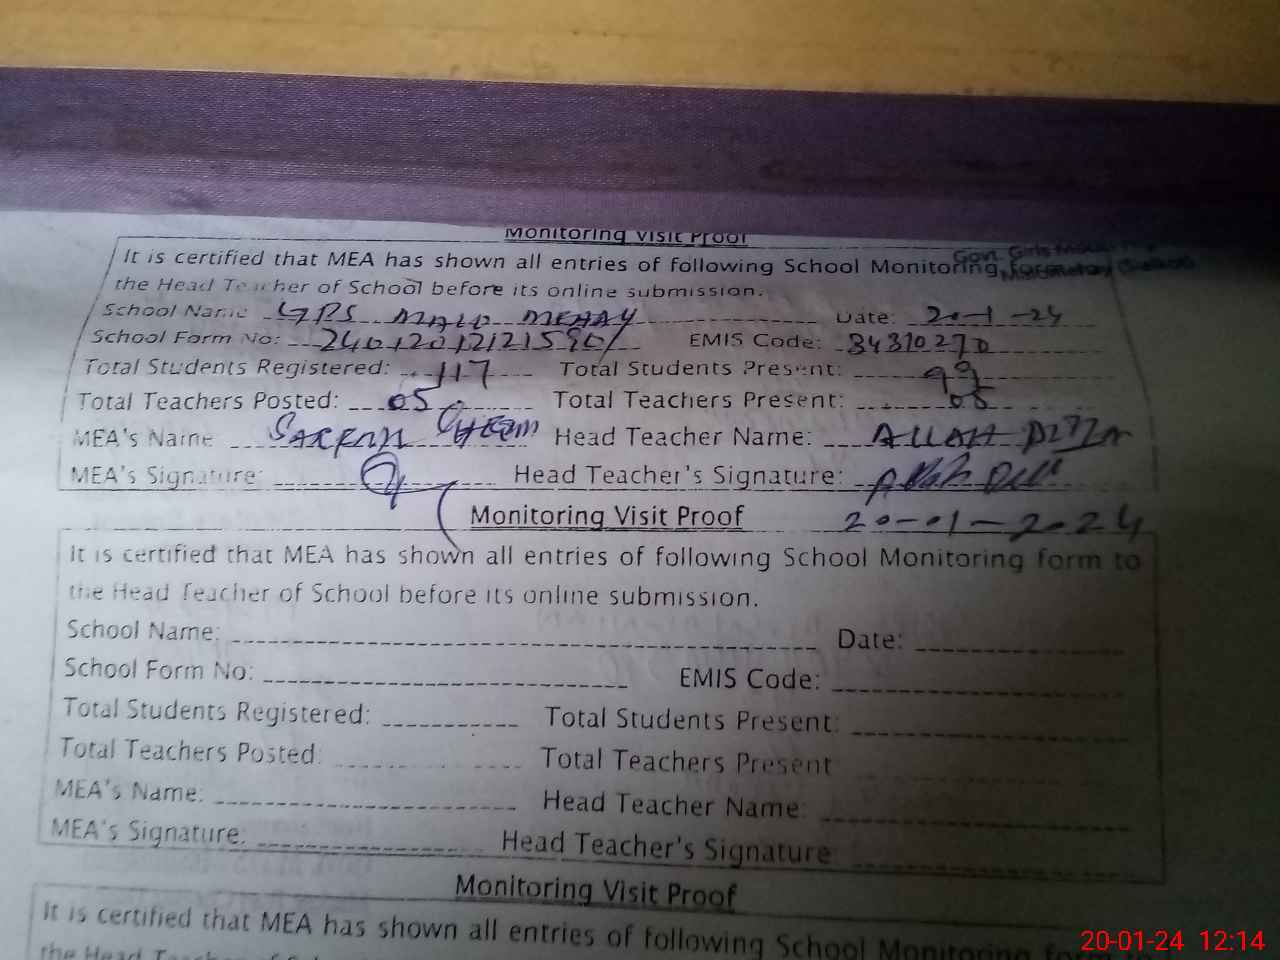 Monitoring Visit Proof
It is certified that MEA has shown all entries of following School Monitoring
the Head Teacher of School before its online submission.
Govt. Girls
School Name GPS MALO MEHAY Date: 20-1-24
School Form No: EMIS Code: 34310270
Total Students Registered: 117 Total Students Present: 99
Total Teachers Posted: 05 Total Teachers Present: 05
MEA's Name Head Teacher Name: ALLAH DITTA
MEA's Signature: Head Teacher's Signature: Allah Ditta
20-01-2024
Monitoring Visit Proof
It is certified that MEA has shown all entries of following School Monitoring form to
the Head Teacher of School before its online submission.
School Name: Date:
School Form No: EMIS Code:
Total Students Registered: Total Students Present:
Total Teachers Posted: Total Teachers Present
MEA's Name: Head Teacher Name:
MEA's Signature: Head Teacher's Signature
Monitoring Visit Proof
It is certified that MEA has shown all entries of following School Monitoring form
the Head Teacher of
20-01-24 12:14